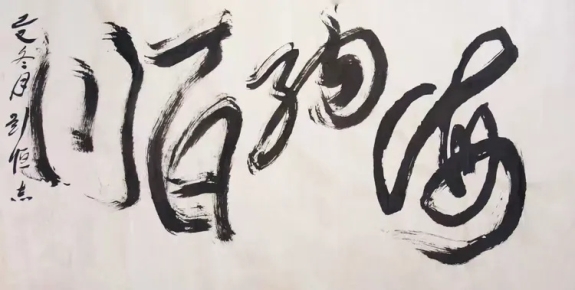 海纳百川
冬月刘恒志